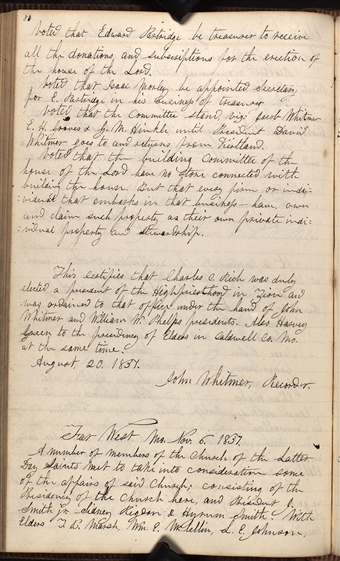 voted that Edward Partridge be treasurer to receive
all the donations, and subscriptions for the erection of
the house of the Lord.
voted that Isaac Morley be appointed Secretary
for E. Partridge in his business of treasurer
voted that the Committee stand, viz. Jacob Whitmer
E. H. Groves & G. M. Hinkle until President David
Whitmer goes to and returns from Kirtland.
Voted that the building committee of the
house of the Lord have no store connected with
building the house. But that every firm, or indi=
vidual that embarks in that business have, own
and claim such property as their own private indi=
vidual property and stewardship.
This certifies that Charles C. Rich was duly
elected a president of the High priesthood in Zion and
was ordained to that office under the hand of John
Whitmer and William W. Phelps presidents. Also Harvey
Green to the presidency of Elders in Caldwell Co. Mo.
at the same time.
August 20. 1837.
John Whitmer, Recorder.
Far West Mo. Nov. 6. 1837.
A number of members of the Church of the Latter
Day Saints met to take into consideration some
of the affairs of said Church; consisting of the
Presidency of the Church here, and President J.
Smith jr. Sidney Rigdon & Hyrum Smith. With
Elders T. B. Marsh, Wm. E. McLellin, L. E. Johnson,